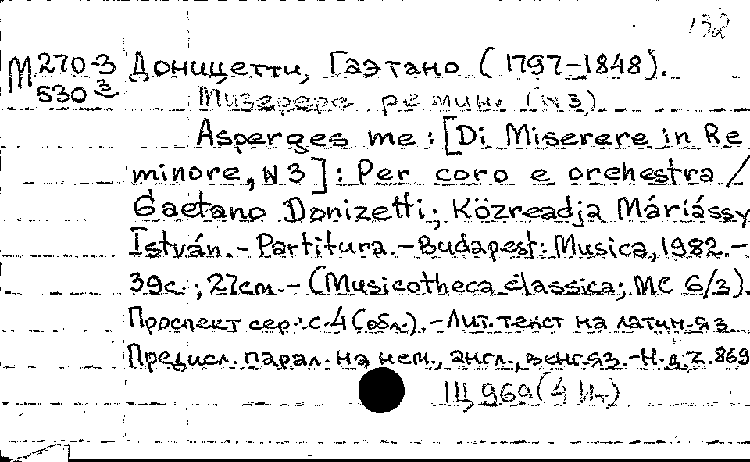 132
М 270-3 Доницетти, Гаэтано (1797-1848).
530 3
Мизерере ре мин. (N3)
Asperges me : [Di Miserere in Re
minore, N 3] : Per coro e orchestra /
Gaetano Donizetti; Közreadja Máriássy
István. - Partitura. - Budapest: Musica, 1982. -
39с.; 27cm. - (Musicotheca classica; MC 6/3).
Проспект сер.: с. 4 (обл.). - Лит. текст на латин. яз.
Предисл. парал. на нем., англ., венг. яз. - Н. д. Z. 869
Щ 969 (4 Ит)